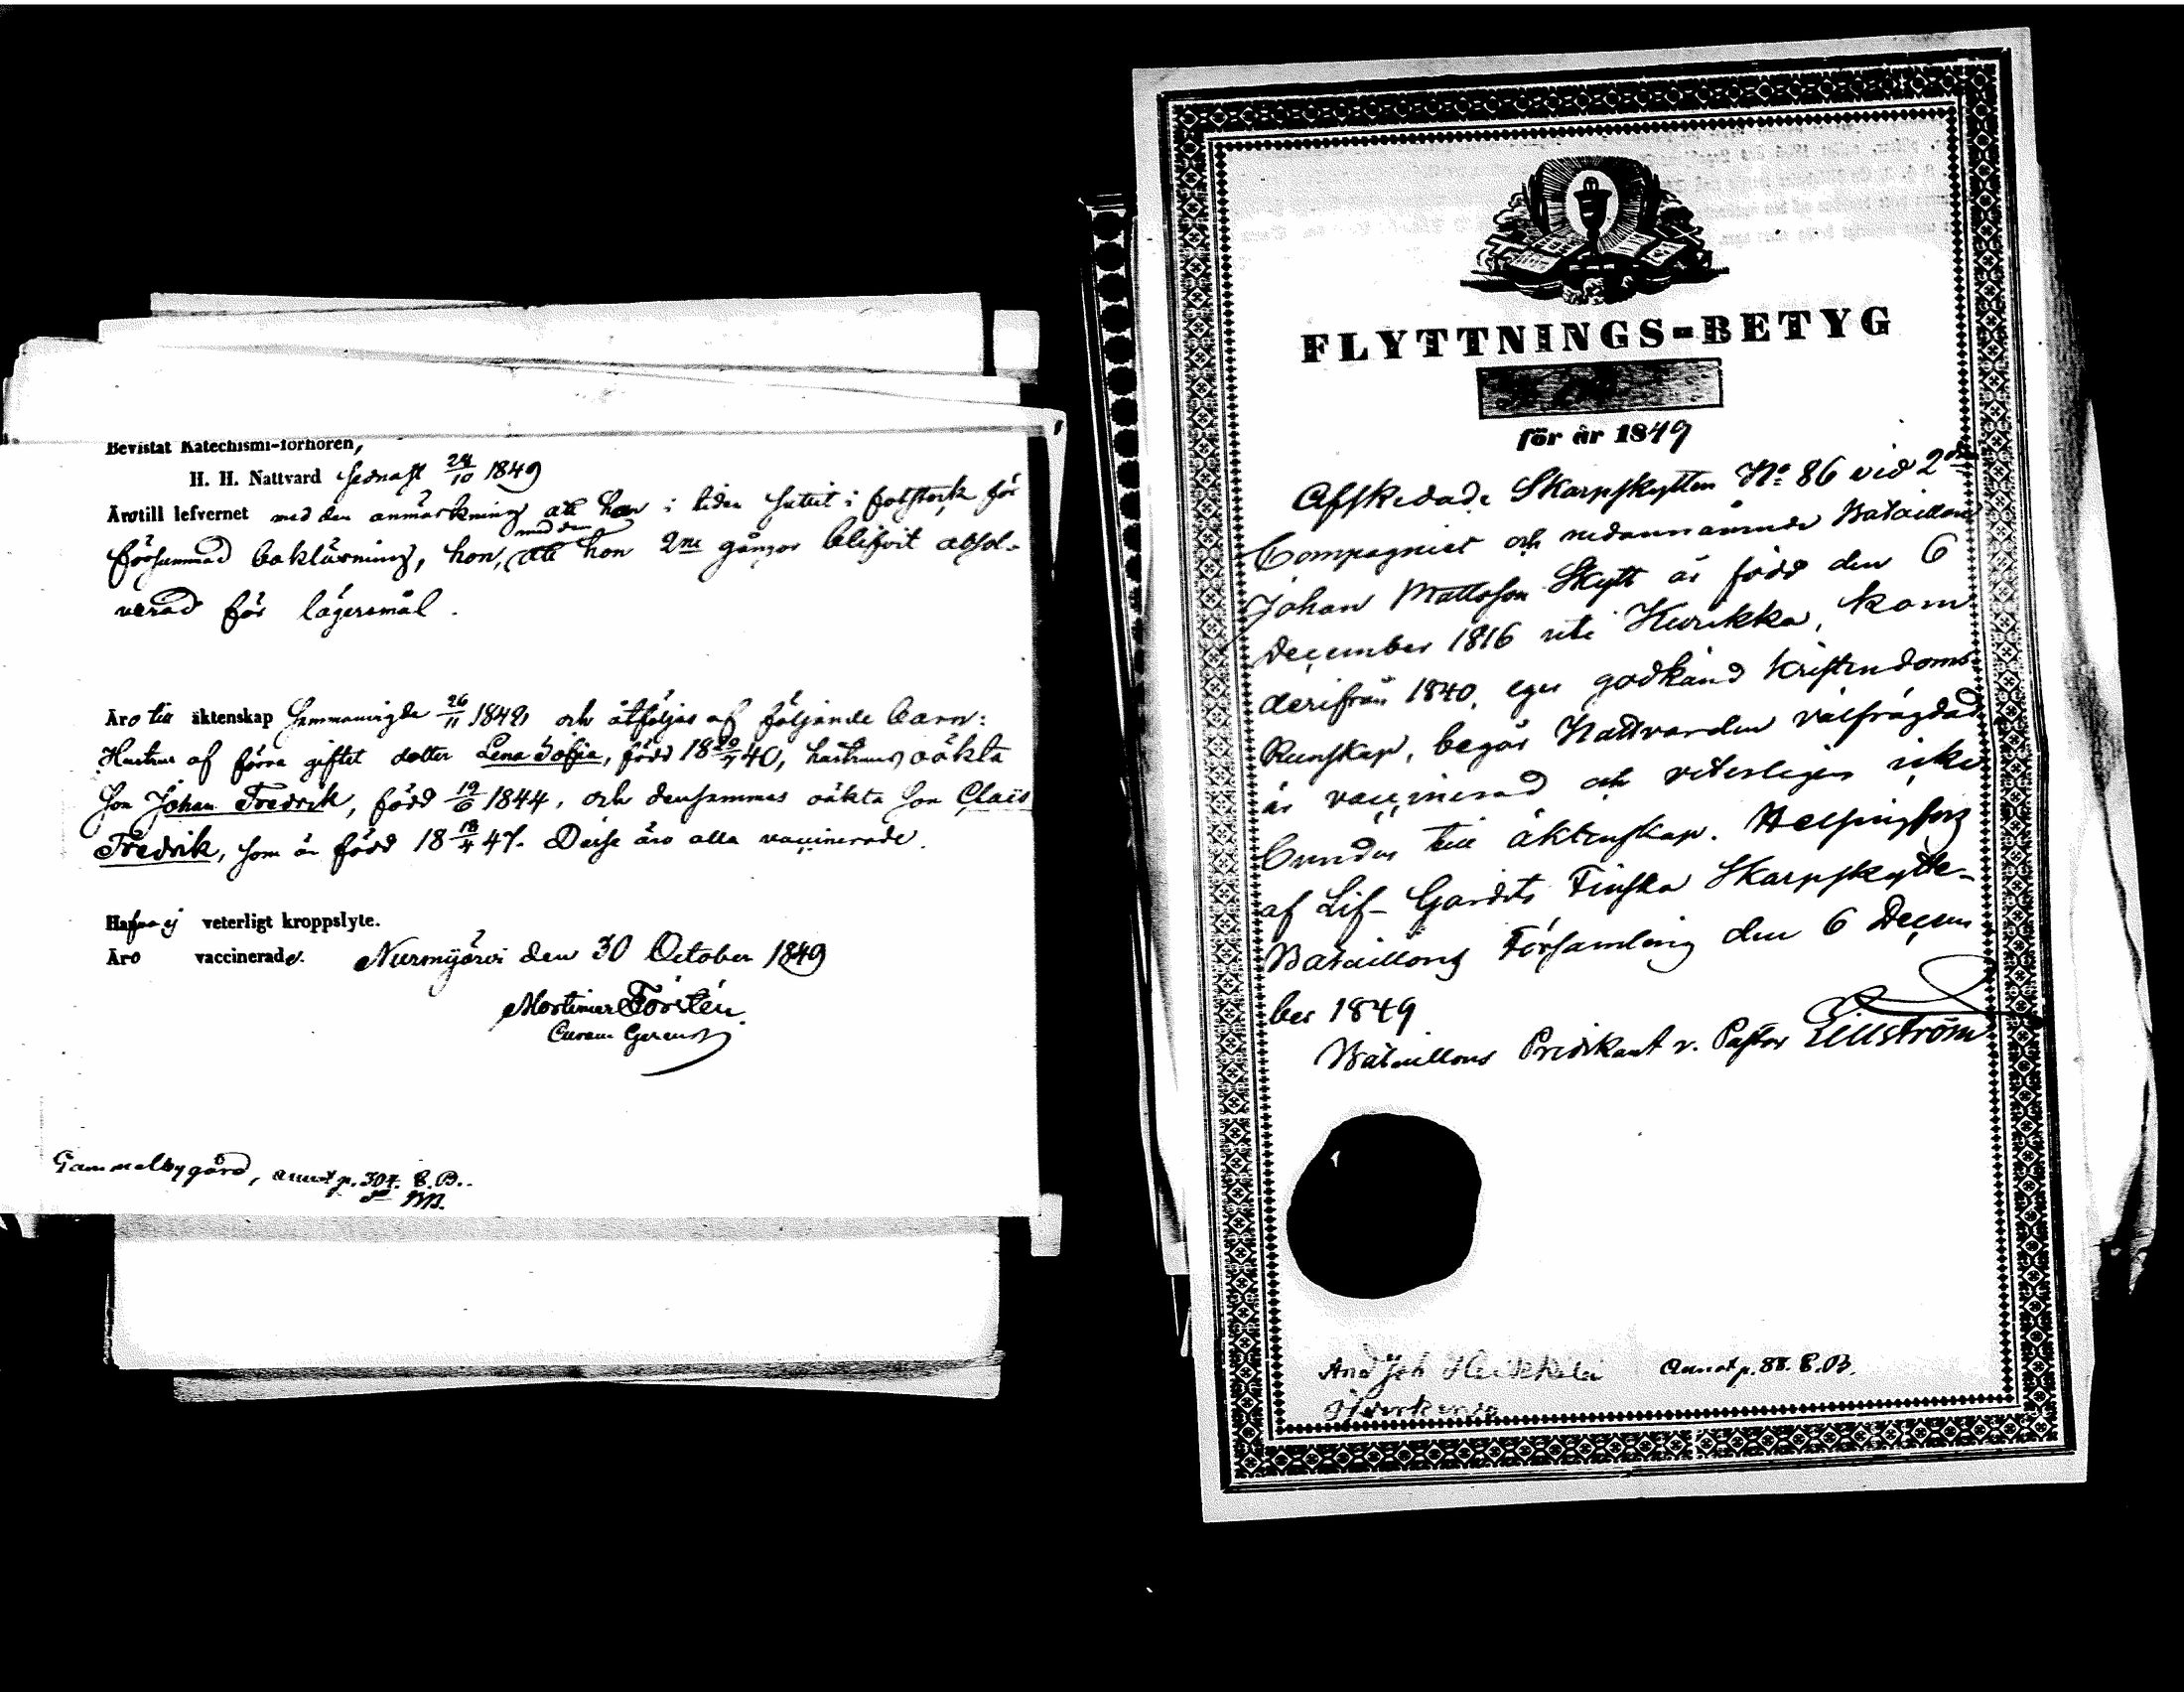 Bevistat Katechismi-förhören,
H. H. Nattvard sednast 24/10 1849
Äro till lefvernet med den anmärkning att han i tiden sutit i fotstock för
försummad bakläxning, hon, med den att hon 2ne gånger blifvit absol-
verad för lägersmål.
Äro till äktenskap sammanvigde 26/11 1848 och åtföljas af följande barn:
Hustrus af förra giftet dotter Lena Sofia, född 18 40, hustrus oäkta
son Johan Fredrik, född 19/6 1844, och densammas oäkta son Claës
Fredrik, som är född 18 18/4 47. Desse äro alla vaccinerade.
Hafva ej veterligt kroppslyte.
Äro vaccinerade. Nurmijärvi den 30 October 1849
Mortimer Forstén.
Curam Gerens
Gammelbygård, annot p. 304. C. B.
FLYTTNINGS-BETYG
för år 1849
Afskedade Skarpskytten No 86 vid 2dra
Compagniet och nedannämnde Bataillon
Johan Mattsson Skytt är född den 6
december 1816 uti Kurikka, kom
derifrån 1840, eger godkänd kristendoms
kunskap, begår Nattvarden välfrägdad
är vaccinerad och veterligen icke
bunden till äktenskap. Helsingfors
af Lif-Gardets Finska Skarpskytte-
Bataillons Församling den 6 Decem
ber 1849
Bataillons Predikant v. Pastor Lillström
And Joh annot p. 88. C. B.